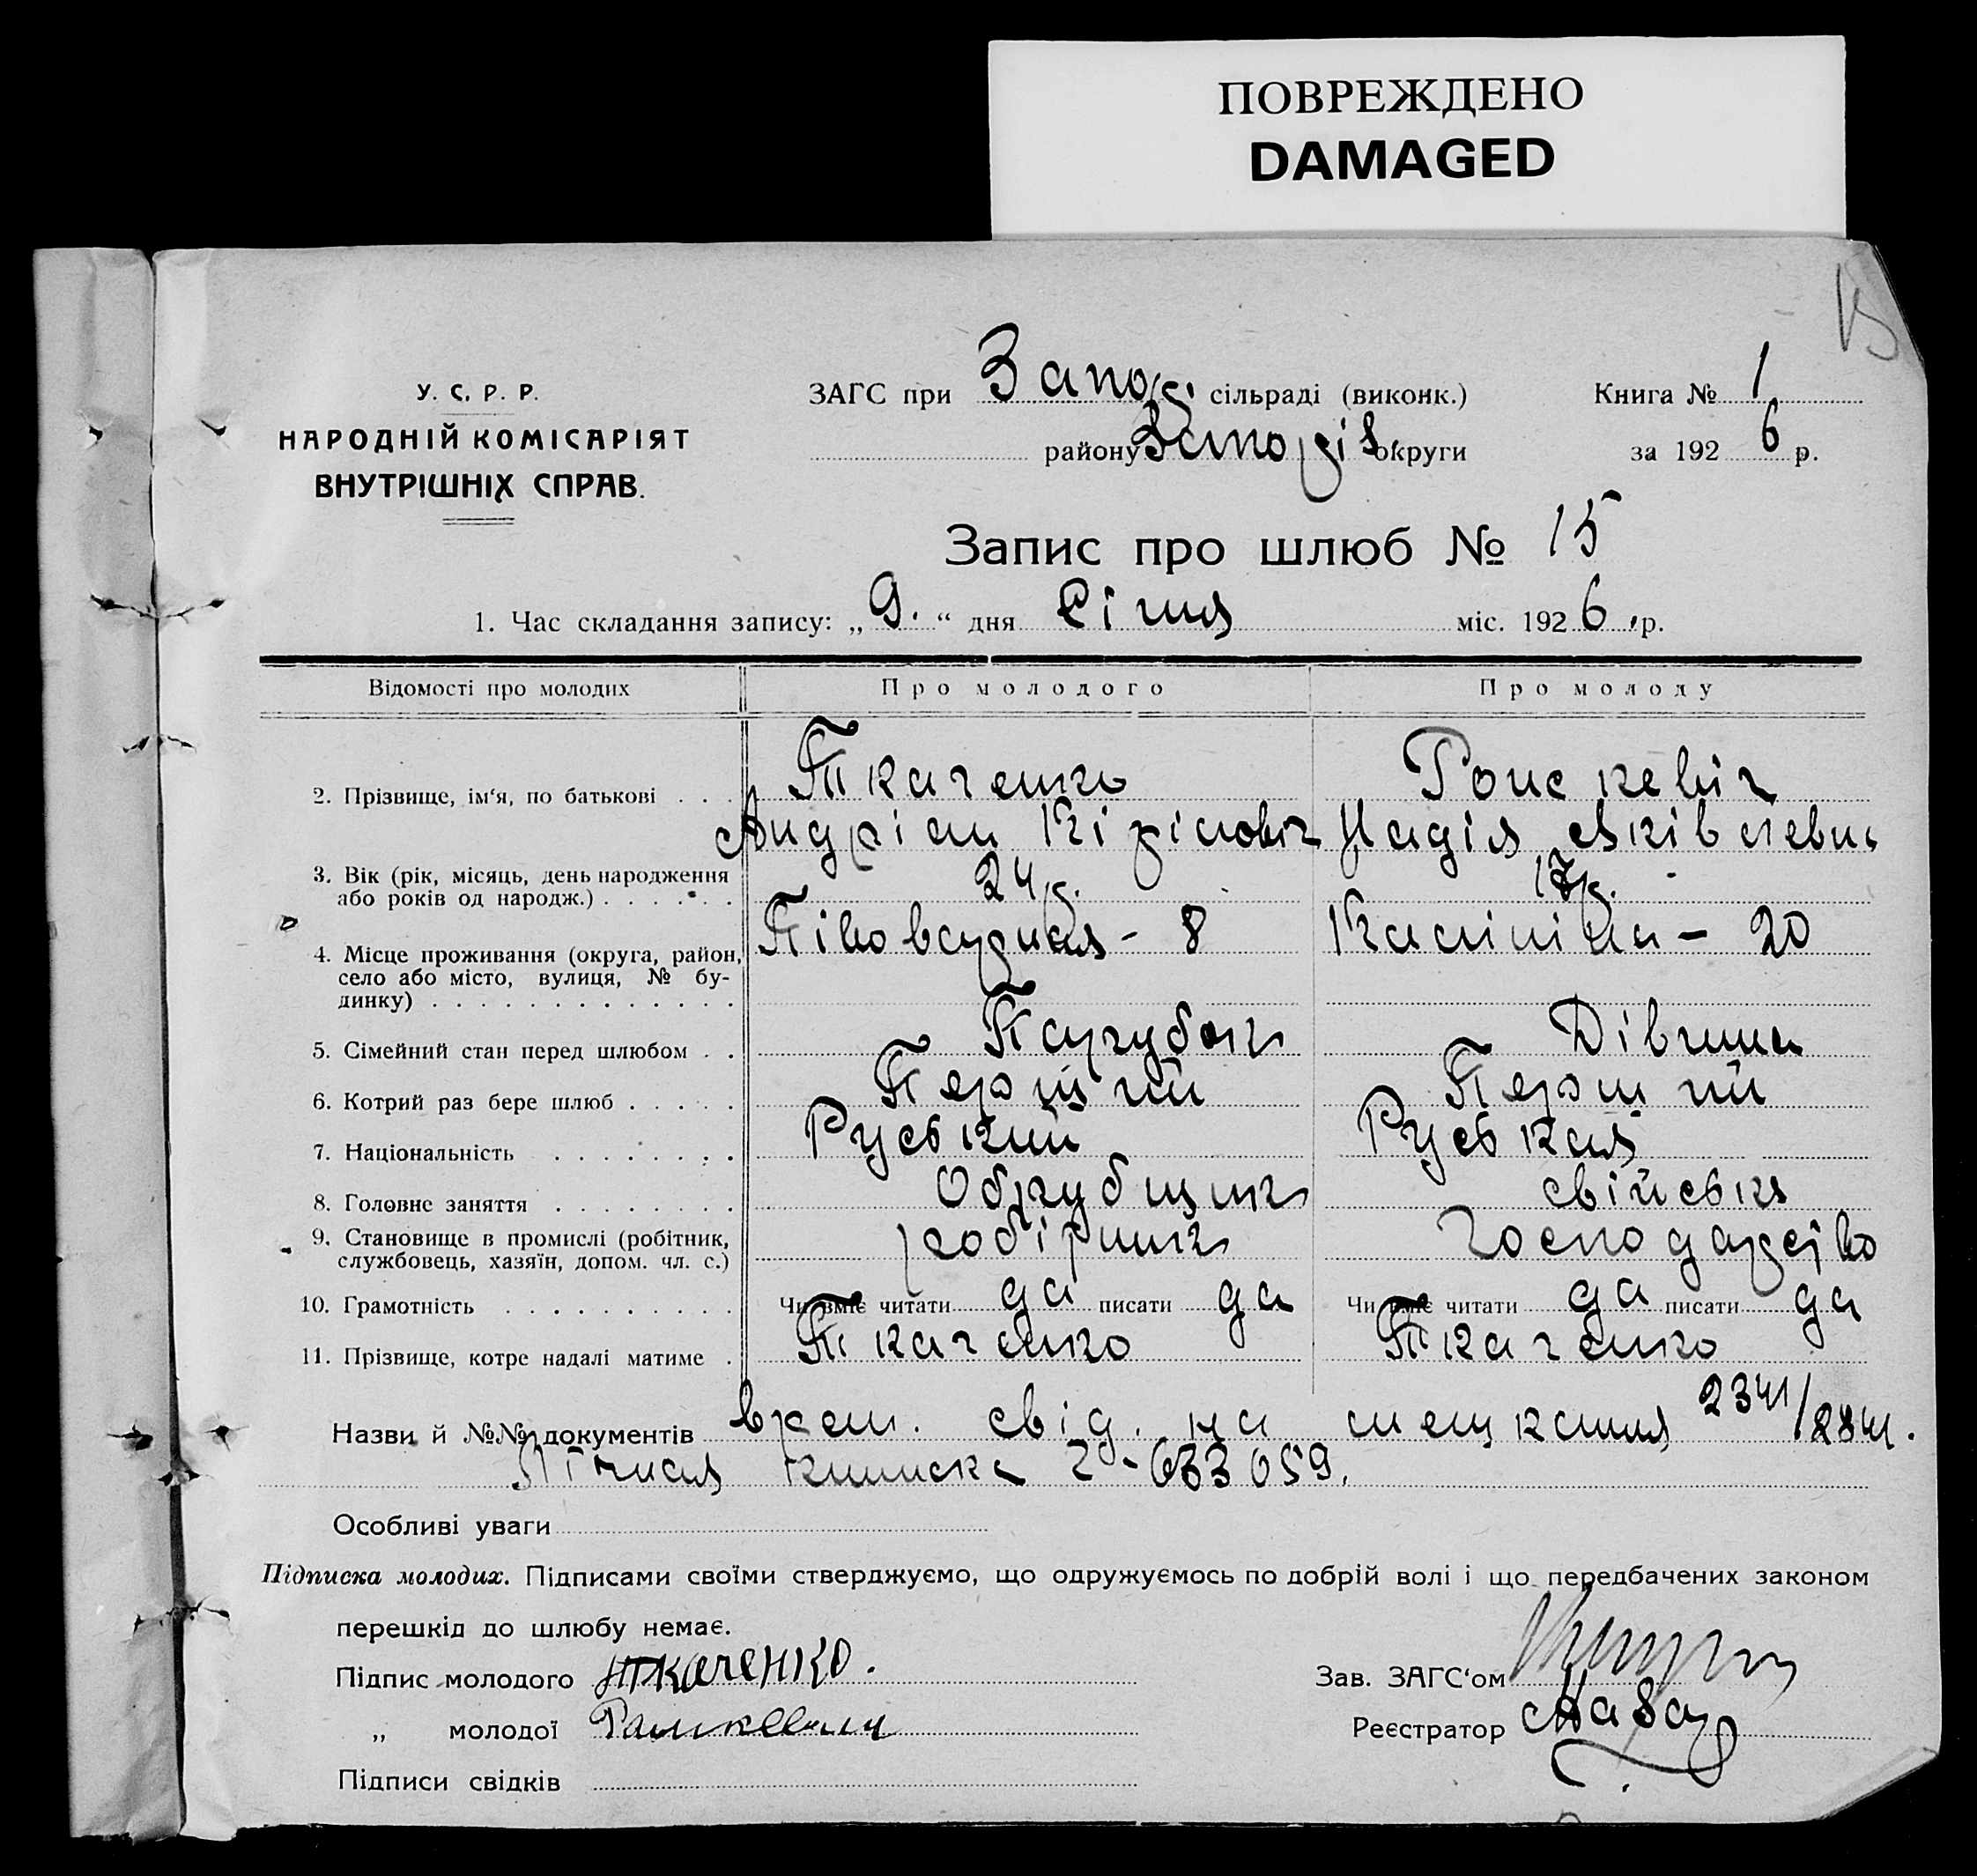 ПОВРЕЖДЕНО
DAMAGED
15
У. С. Р. Р.
НАРОДНІЙ КОМІСАРІЯТ
ВНУТРІШНІХ СПРАВ.
ЗАГС при Запор. сільраді (виконк.)
Книга № 1
району Запоріз округи
за 1926 р.
Запис про шлюб № 15
1. Час складання запису: „9.“ дня Січня міс. 1926 р.
Відомості про молодих
Про молодого
Про молоду
2. Прізвище, ім'я, по батькові . . .
Ткаченко
Андріан Кірілович
Надія Яківлевна
3. Вік (рік, місяць, день народження
або років од народж.) . . . . . .
24 р.
17 р.
4. Місце проживання (округа, район,
село або місто, вулиця, № бу-
динку) . . . . . . . . . . . . .
– 8
Калініна – 20
5. Сімейний стан перед шлюбом . .
Парубок
Дівчина
6. Котрий раз бере шлюб . . . . .
Першій
Першій
7. Національність . . . . . . . .
Руський
Руськая
8. Головне заняття . . . . . . . .
Обрубщик
свійське
9. Становище в промислі (робітник,
службовець, хазяїн, допом. чл. с.)
робітник
господарство
10. Грамотність . . . . . . . . . .
Чи вміє читати да писати да
Чи вміє читати да писати да
11. Прізвище, котре надалі матиме .
Ткаченко
Ткаченко
Назви й №№ документів врем. свід. на мешкання 2341/2841.
книжка 2-633059.
Особливі уваги
Підписка молодих. Підписами своїми стверджуємо, що одружуємось по добрій волі і що передбачених законом
перешкід до шлюбу немає.
Підпис молодого Ткаченко.
Зав. ЗАГС'ом
„ молодої
Реєстратор
Підписи свідків